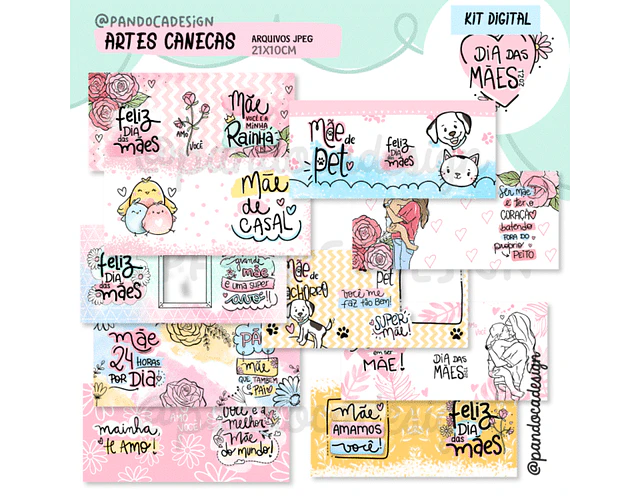 @PANDOCADESiGN
ARTES CANECAS
ARQUIVOS JPEG
21X10CM
KIT DIGITAL
DIA DAS
MÃES
12OZ
feliz
DIA
das
mães
AMO
VOCÊ
Mãe
VOCÊ É A
MINHA
RAINHA
Mãe
de
PET
feliz
DIA das
mães
Mãe
DE
CASAL
Ser MÃE
é ter o
CORAÇÃO
batendo
FORA DO
próprio
PEITO
feliz
DIA
das
mães
grande
mãe
É UMA SUPER
avó!!
Mãe
de
CACHORRO
você me
faz tão Bem!
PET
SUPER
Mãe!
Mãe
24 HORAS
POR DIA
Mãe
QUE TAMBÉM
É PAI
em ter
MÃE!
DIA DAS
MÃES
mainha
te AMO!
AMO
VOCÊ
Você é a
melhor
Mãe
do mundo!
Mãe,
AMAMOS
você!
feliz
DIA
das
mães
@pandocadesign